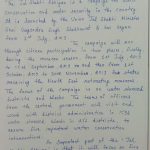 The Jal Shakti Abhiyan is a campaign for water
conservation and water security in the country.
It is launched by the Union Jal Shakti Minister
Shri Gajendra Singh Shekhawat. It has begun
from 1st July 2019.
The campaign will run
through citizen participation in two phases, firstly
during the monsoon season, from 1st July 2019
to 15th September 2019 and secondly from 1st
October 2019 to 30th November 2019 for states
receiving the North East retreating monsoon.
The focus of the campaign is on water stressed
districts and blocks. The teams of officers
from the central government will visit and
work with district administration in 1592
water stressed blocks in 256 districts, to
ensure five important water conservation
interventions.
An important part of the Jal